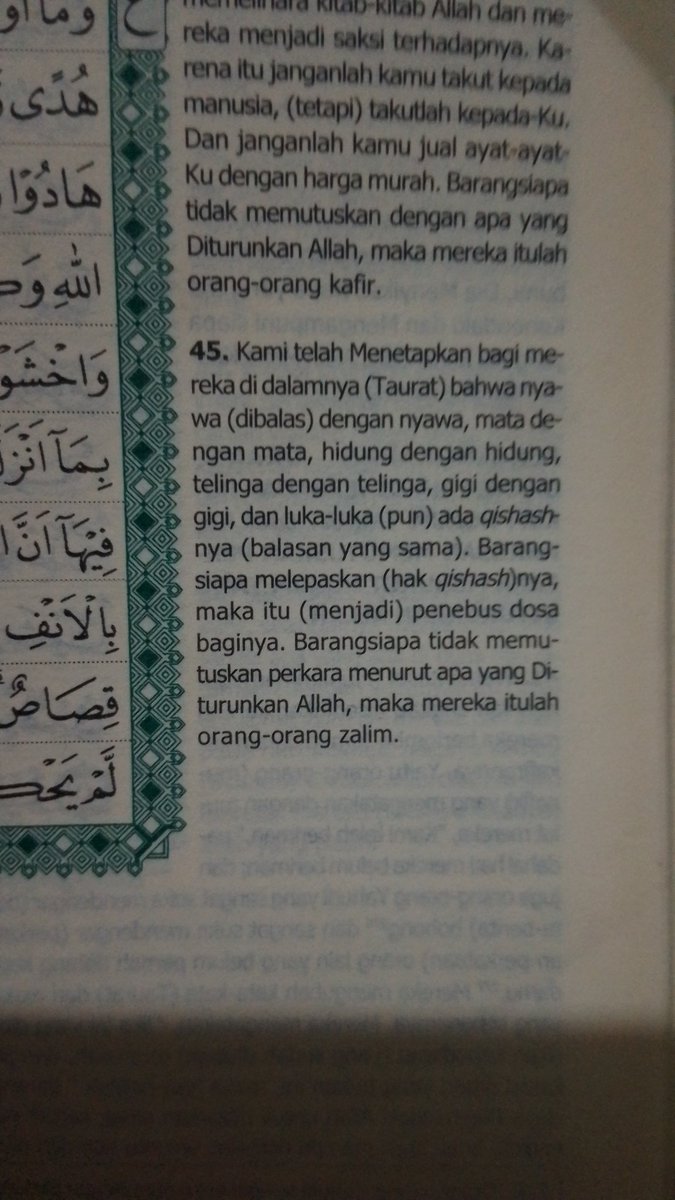 وَمَا اَو
هُدًى
هَادُوْا
اللّٰهِ وَكَ
وَاخْشَوْ
بِمَآ اَنْزَلَ
فِيْهَآ اَنَّ ا
بِالْاَنْفِ
قِصَاصٌ
لَّمْ يَحْكُ
memelihara kitab-kitab Allah dan me-
reka menjadi saksi terhadapnya. Ka-
rena itu janganlah kamu takut kepada
manusia, (tetapi) takutlah kepada-Ku.
Dan janganlah kamu jual ayat-ayat-
Ku dengan harga murah. Barangsiapa
tidak memutuskan dengan apa yang
Diturunkan Allah, maka mereka itulah
orang-orang kafir.
45. Kami telah Menetapkan bagi me-
reka di dalamnya (Taurat) bahwa nya-
wa (dibalas) dengan nyawa, mata de-
ngan mata, hidung dengan hidung,
telinga dengan telinga, gigi dengan
gigi, dan luka-luka (pun) ada qishash-
nya (balasan yang sama). Barang-
siapa melepaskan (hak qishash)nya,
maka itu (menjadi) penebus dosa
baginya. Barangsiapa tidak memu-
tuskan perkara menurut apa yang Di-
turunkan Allah, maka mereka itulah
orang-orang zalim.